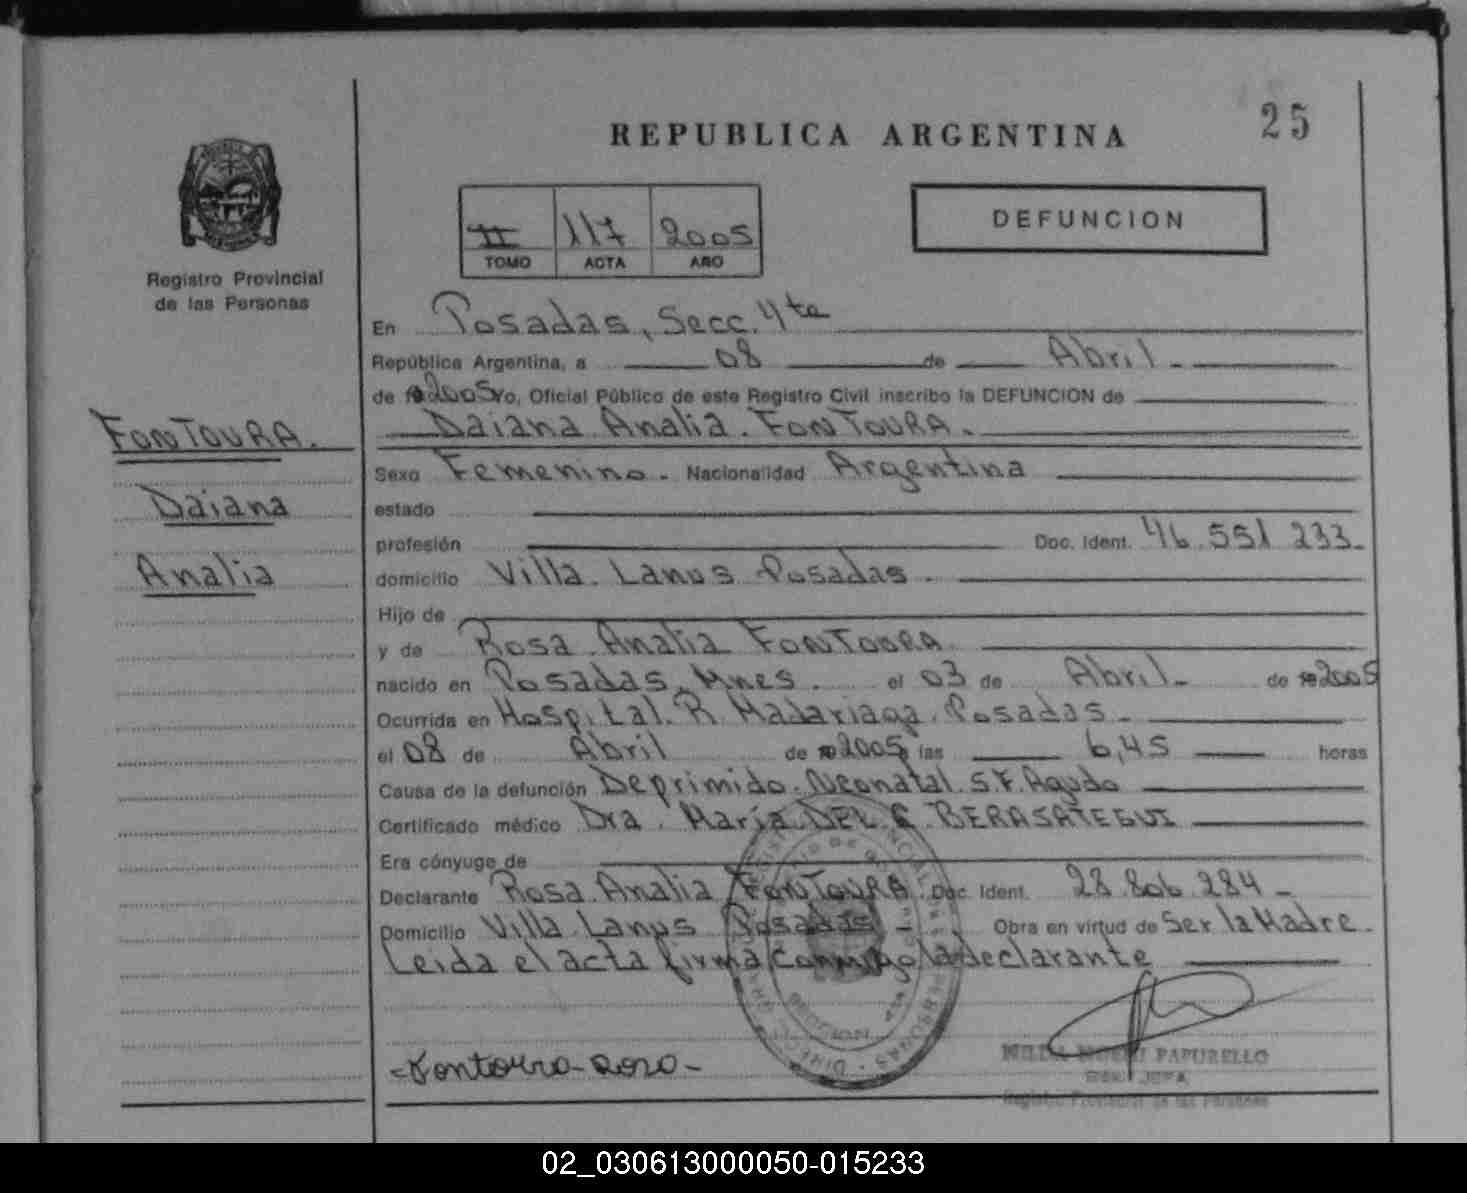 25
REPUBLICA ARGENTINA
II 117 2005
TOMO ACTA AÑO
DEFUNCION
Registro Provincial
de las Personas
FONTOURA.
Daiana
Analia
En Posadas, Secc. 4ta
República Argentina, a 08 de Abril
de 2005 yo, Oficial Público de este Registro Civil inscribo la DEFUNCION de
Daiana Analia. FONTOURA.
Sexo Femenino. Nacionalidad Argentina
estado
profesión Doc. Ident. 46.551 233
domicilio Villa Lanus Posadas.
Hijo de
y de Rosa Analia FONTOURA
nacido en Posadas, Mnes. el 03 de Abril de 2005
Ocurrida en Hospital. R. Madariaga. Posadas
el 08 de Abril de 2005 las 6,45 horas
Causa de la defunción Deprimido. Neonatal. S.F. Agudo
Certificado médico Dra. María DEL C. BERASATEGUI
Era cónyuge de
Declarante Rosa. Analia FONTOURA. Doc. Ident. 28.806.284
Domicilio Villa Lanus Posadas Obra en virtud de Ser la Madre.
Leida el acta firma conmigo la declarante
PAPURELLO
JEFA
Registro Provincial de las Personas
02_030613000050-015233